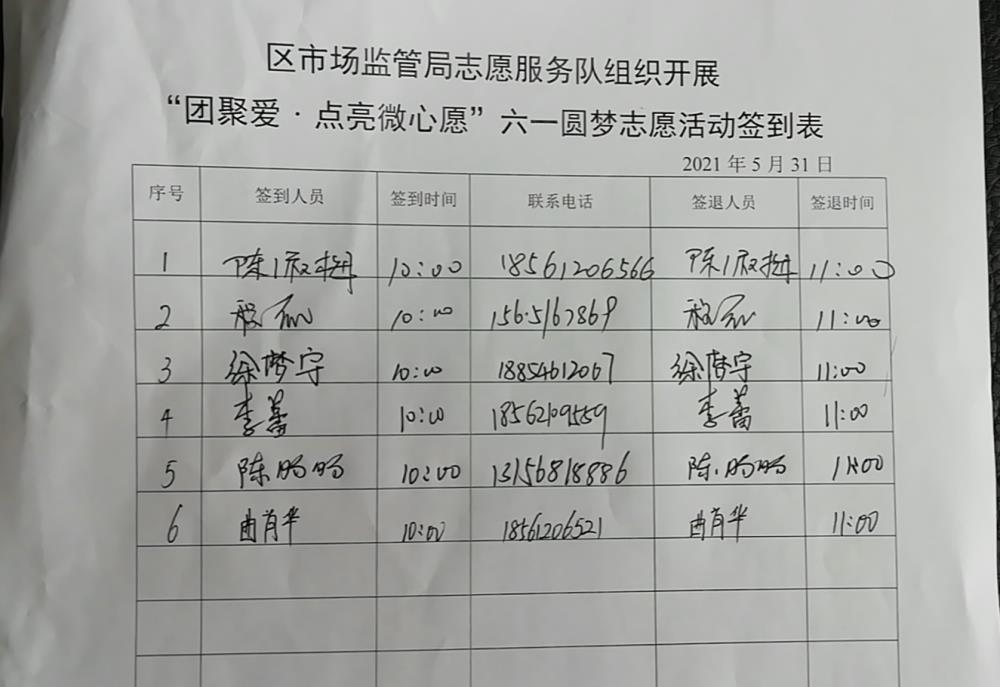 区市场监管局志愿服务队组织开展
“团聚爱·点亮微心愿”六一圆梦志愿活动签到表
2021年5月31日
序号 签到人员 签到时间 联系电话 签退人员 签退时间
1 陈 10:00 18561206566 陈 11:00
2 10:00 1565167869 11:00
3 徐梦宇 10:00 18854612067 徐梦宇 11:00
4 李蕾 10:00 18562109559 李蕾 11:00
5 陈旸旸 10:00 13156818886 陈旸旸 11:00
6 曲肖华 10:00 18561206521 曲肖华 11:00